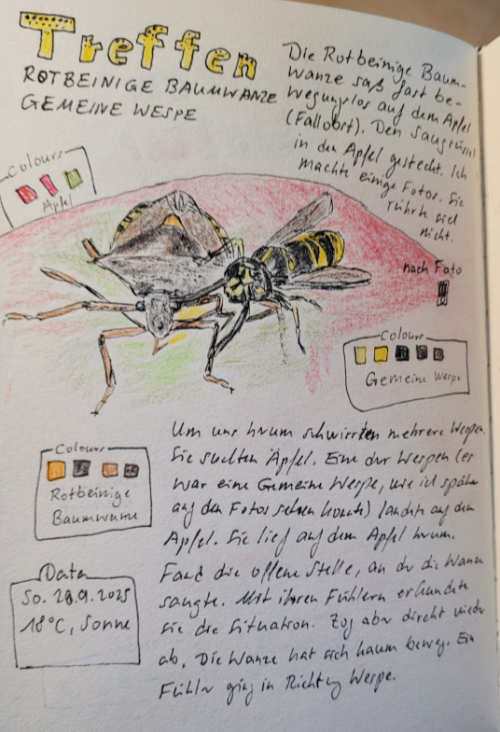 Treffen
ROTBEINIGE BAUMWANZE
GEMEINE WESPE
Die Rotbeinige Baum-
wanze saß fast be-
wegungslos auf dem Apfel
(Fallobst). Den Saugrüssel
in den Apfel gesteckt. Ich
machte einige Fotos. Sie
rührte sich
nicht.
Colours
Apfel
nach Foto
Colours
Gemeine Wespe
Colours
Rotbeinige
Baumwanze
Data
So. 28.9.2025
18°C, Sonne
Um uns herum schwirrten mehrere Wespen.
Sie suchten Äpfel. Eine der Wespen (es
war eine Gemeine Wespe, wie ich später
auf den Fotos sehen konnte) landete auf dem
Apfel. Sie lief auf dem Apfel herum.
Fand die offene Stelle, an der die Wanze
saugte. Mit ihren Fühlern erkundete
sie die Situation. Zog aber direkt wieder
ab. Die Wanze hat sich kaum bewegt. Ein
Fühler ging in Richtung Wespe.